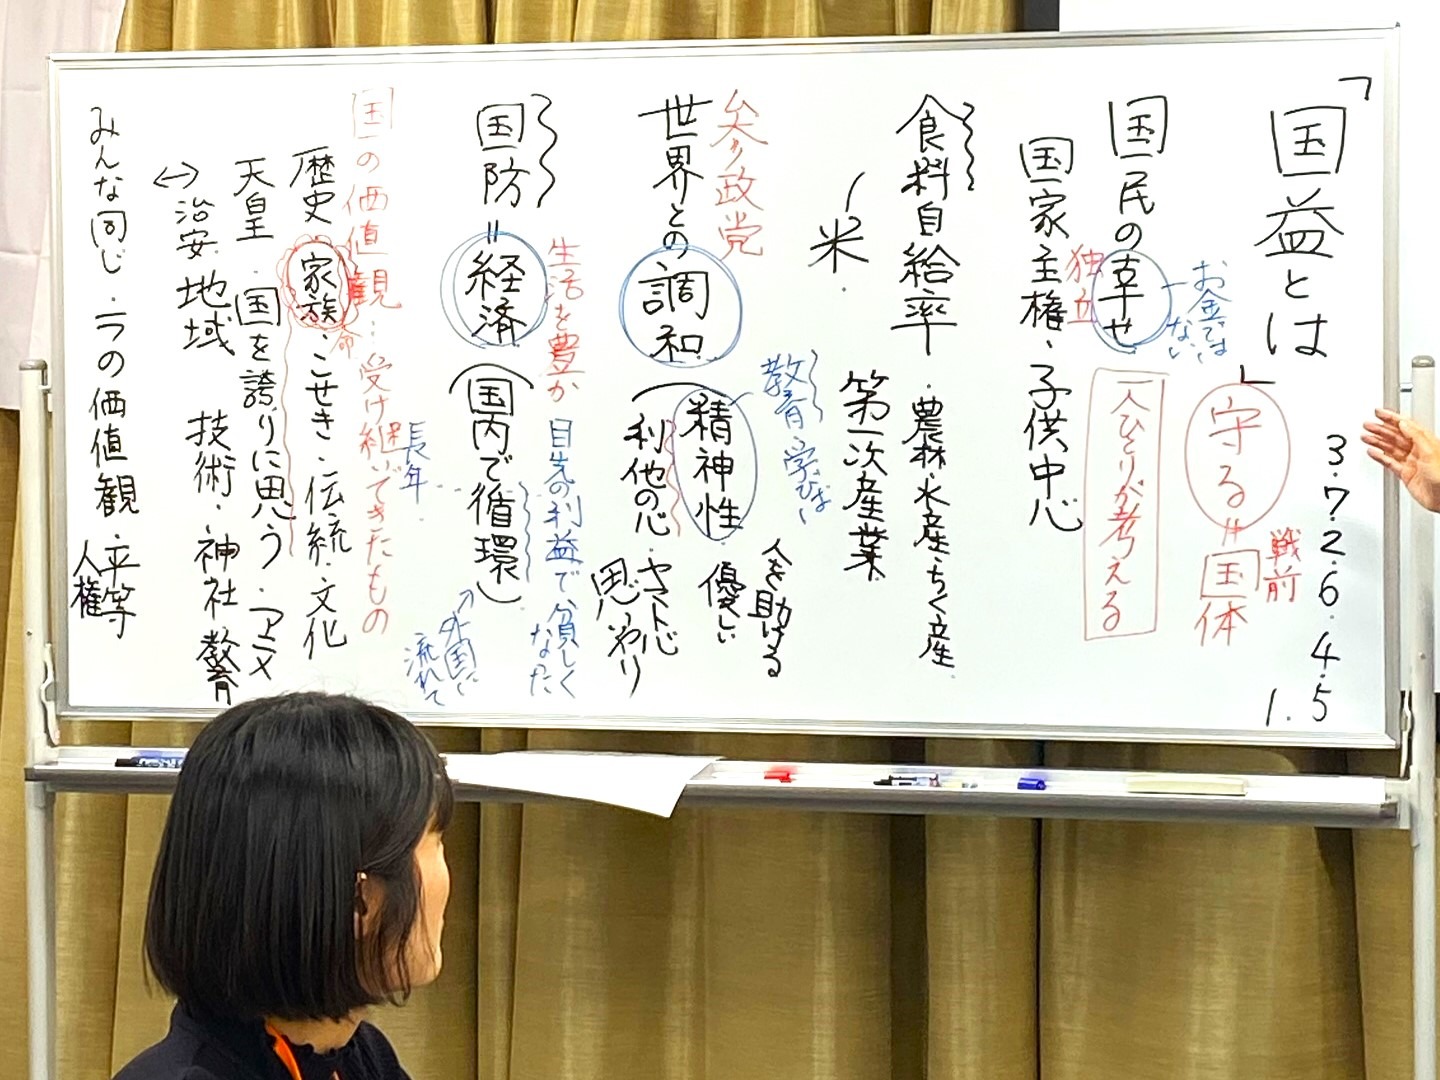 「国益とは」
3.7.2.6.4.5
1.
守る=国体
戦前
お金では
ない
国民の幸せ
一人ひとりが考える
独立
国家主権、子供中心
食料自給率
・農林、水産、ちく産
第一次産業
米
参政党
世界との調和
(精神性
利他の心
教育 学ばない
人を助ける
優しい
やまと心
思いやり
生活を豊か
目先の利益で貧しく
なった
国防=経済
(国内で循環)
外国に
流れて
長年
国の価値観…受け継いできたもの
命
歴史、家族、こせき、伝統、文化
天皇、国を誇りに思う、アニメ
↔治安
地域
技術、神社、教育
みんな同じ、1つの価値観、平等
人権